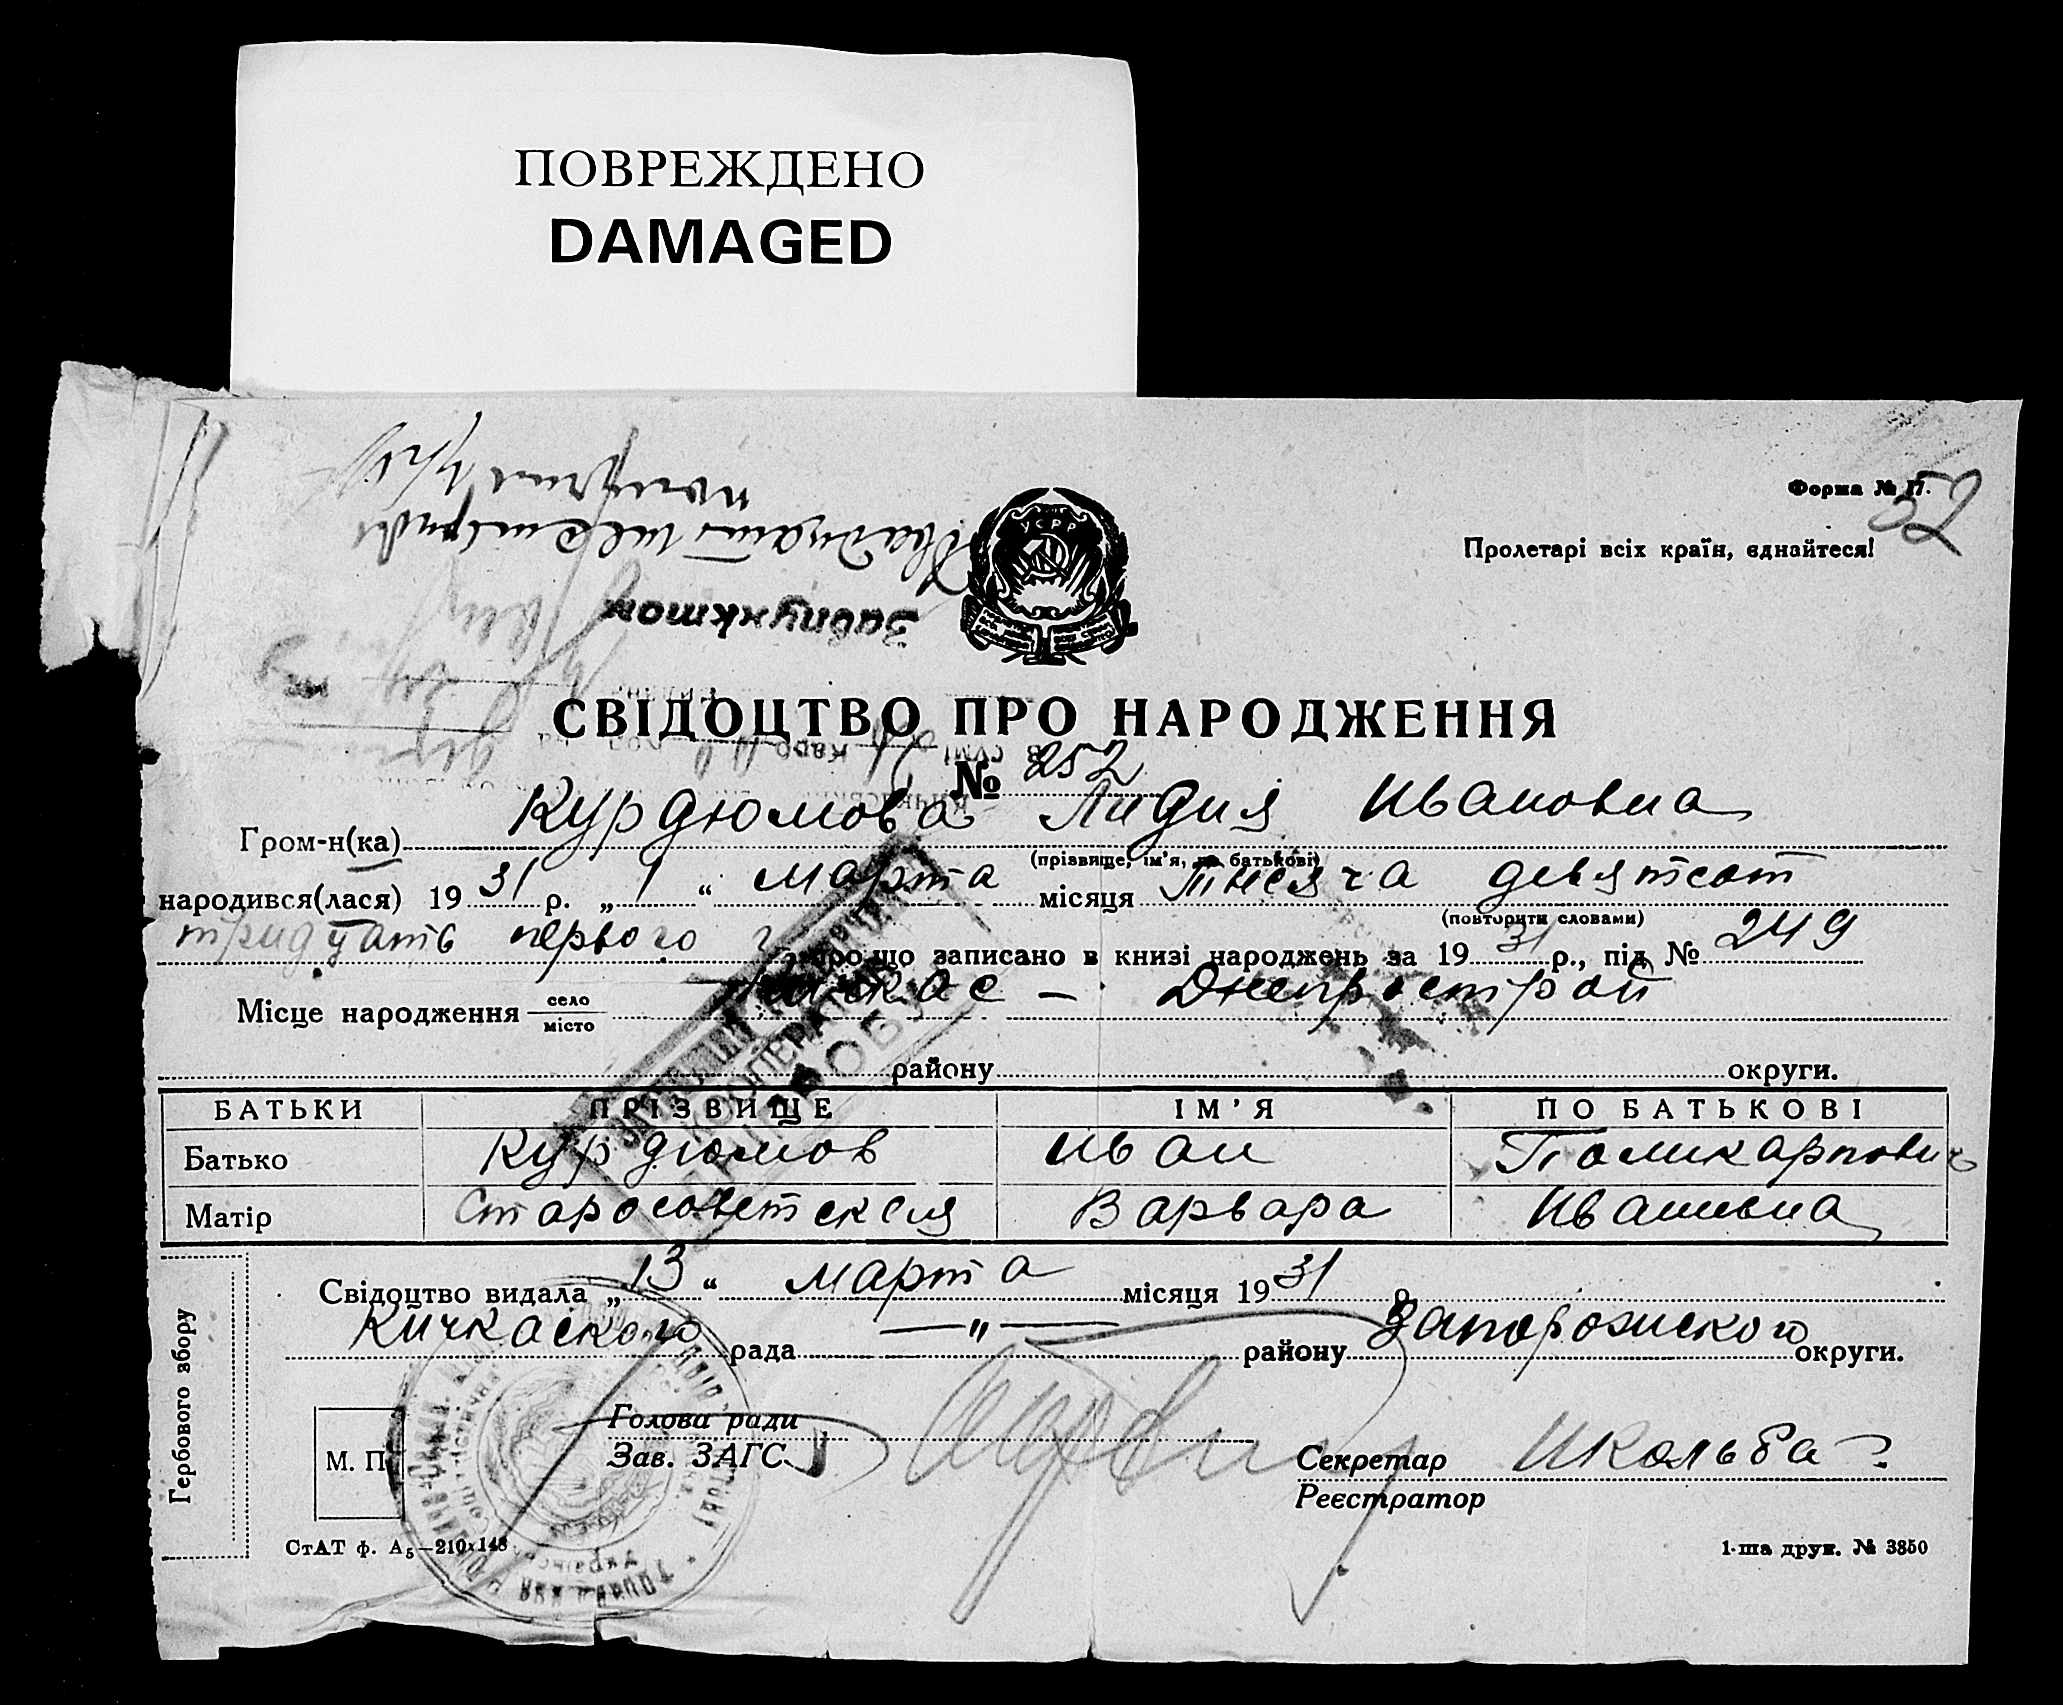 ПОВРЕЖДЕНО
DAMAGED
Форма № 17.
УСРР
Пролетарі всіх країн, єднайтеся!
Завпунктом
СВІДОЦТВО ПРО НАРОДЖЕННЯ
№ 252
Гром-н(ка) Курдюмова Лидия Ивановна
(прізвище, ім'я, по батькові)
народився(лася) 1931 р. „1“ марта місяця тисяча девятсот
(повторити словами)
тридцать первого г що записано в книзі народжень за 1931 р., під № 249
Місце народження село/місто Кичкас – Днепрострой
району округи.
БАТЬКИ ПРІЗВИЩЕ ІМ'Я ПО БАТЬКОВІ
Батько Курдюмов Иван Поликарпович
Матір Старосоветская Варвара Ивановна
Свідоцтво видала „13“ марта місяця 1931 р.
Кичкаского рада —„— району Запорожского округи.
Гербового збору
М. П.
Голова ради
Зав. ЗАГС
Секретар
Реєстратор
СтАТ ф. А5—210х148
1-ша друк. № 3850